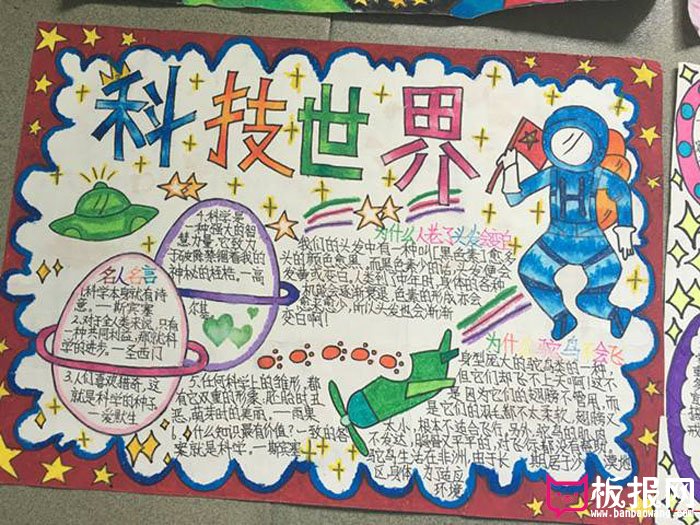 科技世界
4.科学是
一种强大的智
慧力量,它致力
于破除禁锢着我的
神秘的桎梏。—高
尔基
名人名言
1.科学本身就有诗
意。—斯宾塞
2.对于全人类来说,只有
一种共同利益,那就科
学的进步。—圣西门
3.人们喜欢猎奇,这
就是科学的种子。
—爱默生
5.任何科学上的雏形,都
有它双重的形象:胚胎时丑
恶,萌芽时的美丽。—雨果
6.什么知识最有价值?一致的答
案就是科学。—斯宾塞
为什么人老了头发会变白
我们的头发中有一种叫【黑色素】愈多
头的颜色愈黑。而黑色素少的话,头发便会
发黄或变白。人类到了中年时,身体的各种
机能会逐渐衰退,色素的形成亦会
愈来愈少,所以头发也会渐渐
变白啊!
为什么鸵鸟不会飞
身型庞大的鸵鸟类的一种,
但它们却飞不上天啊!这不
是因为它们的翅膀不管用,而
是它们的羽毛都不太柔软,翅膀又
太小,根本不适合飞行。另外,鸵鸟的肌肉
不发达,胸骨又平平的,对飞行都没有帮助。
鸵鸟生活在非洲,由于长期居于沙漠地
区,身体
环境
板报网
www.banbaowang.com